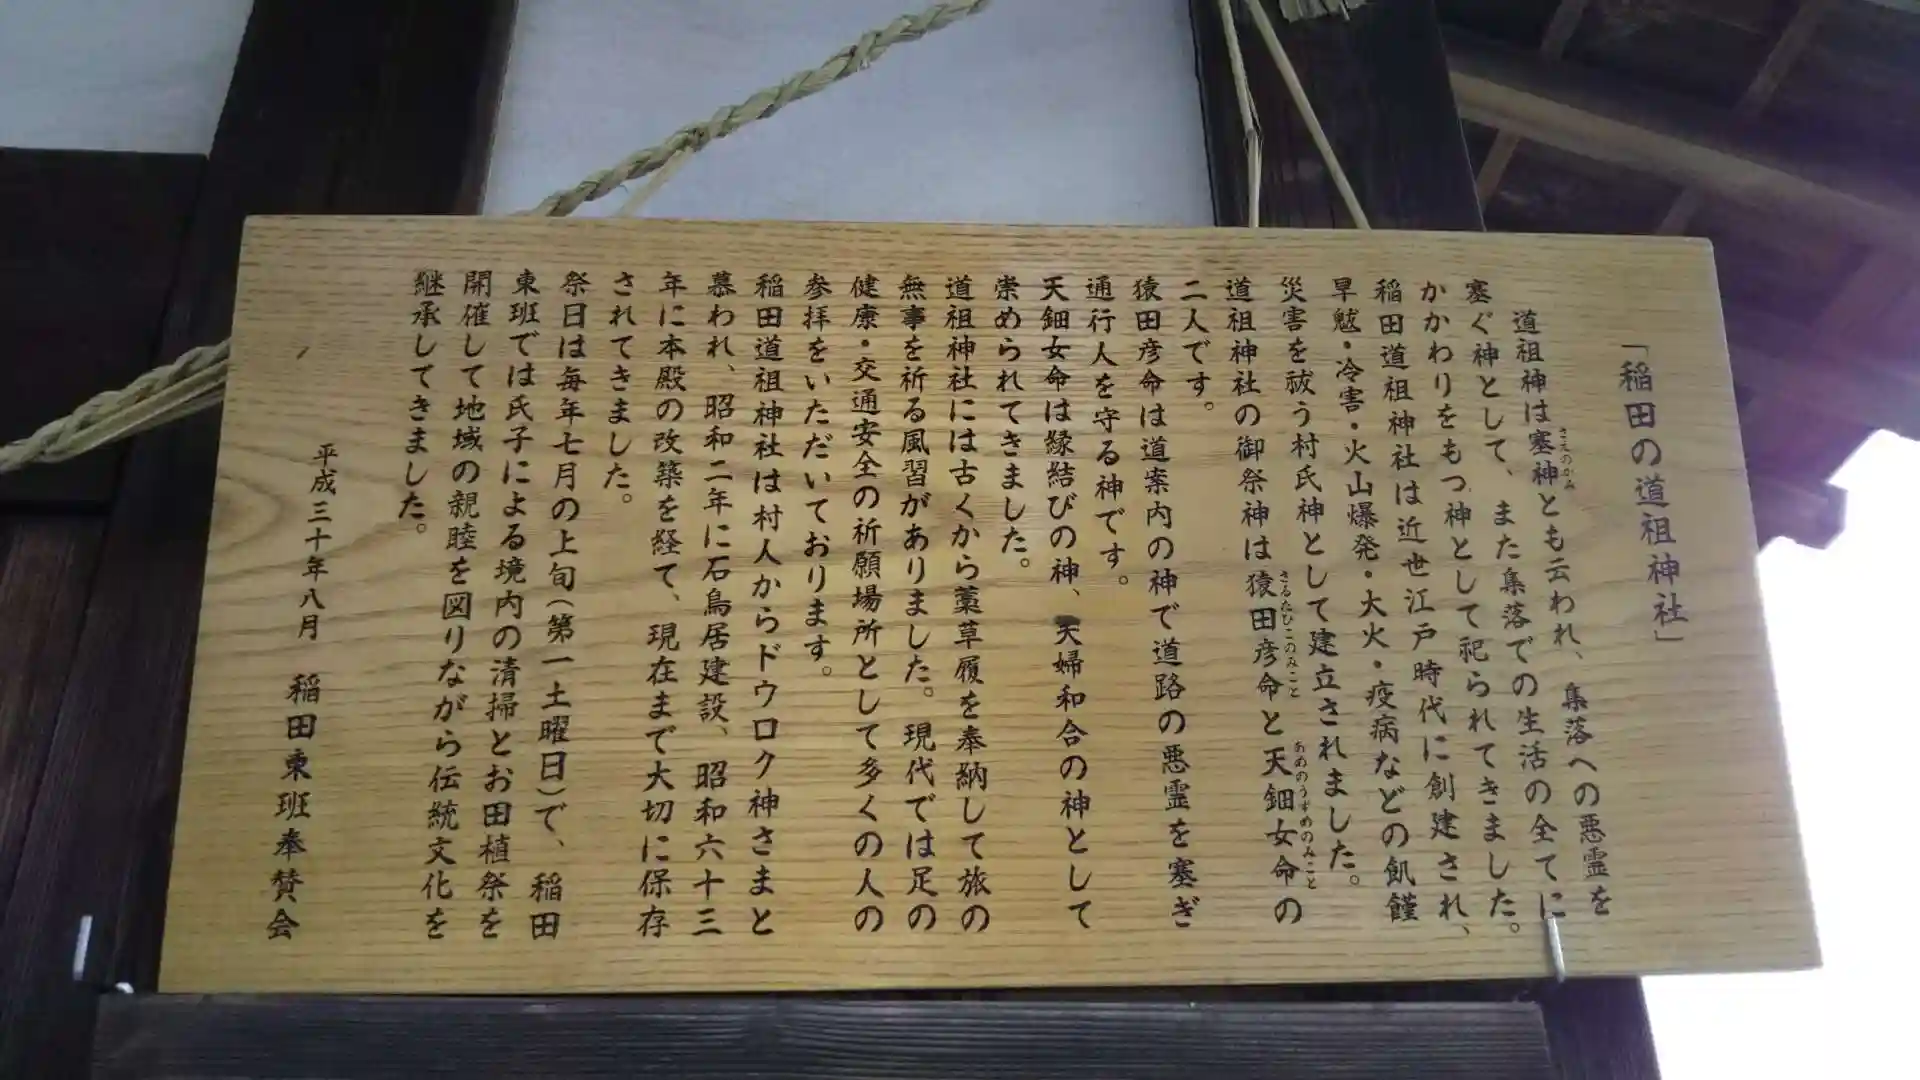 「稲田の道祖神社」
道祖神は塞神とも云われ、集落への悪霊を
さえのかみ
塞ぐ神として、また集落での生活の全てに
かかわりをもつ神として祀られてきました。
稲田道祖神社は近世江戸時代に創建され、
旱魃・冷害・火山爆発・大火・疫病などの飢饉
災害を祓う村氏神として建立されました。
道祖神社の御祭神は猿田彦命と天鈿女命の
さるたひこのみこと
あめのうずめのみこと
二人です。
猿田彦命は道案内の神で道路の悪霊を塞ぎ
通行人を守る神です。
天鈿女命は縁結びの神、夫婦和合の神として
崇められてきました。
道祖神社には古くから藁草履を奉納して旅の
無事を祈る風習がありました。現代では足の
健康・交通安全の祈願場所として多くの人の
参拝をいただいております。
稲田道祖神社は村人からドウロク神さまと
慕われ、昭和二年に石鳥居建設、昭和六十三
年に本殿の改築を経て、現在まで大切に保存
されてきました。
祭日は毎年七月の上旬(第一土曜日)で、稲田
東班では氏子による境内の清掃とお田植祭を
開催して地域の親睦を図りながら伝統文化を
継承してきました。
平成三十年八月　稲田東班奉賛会